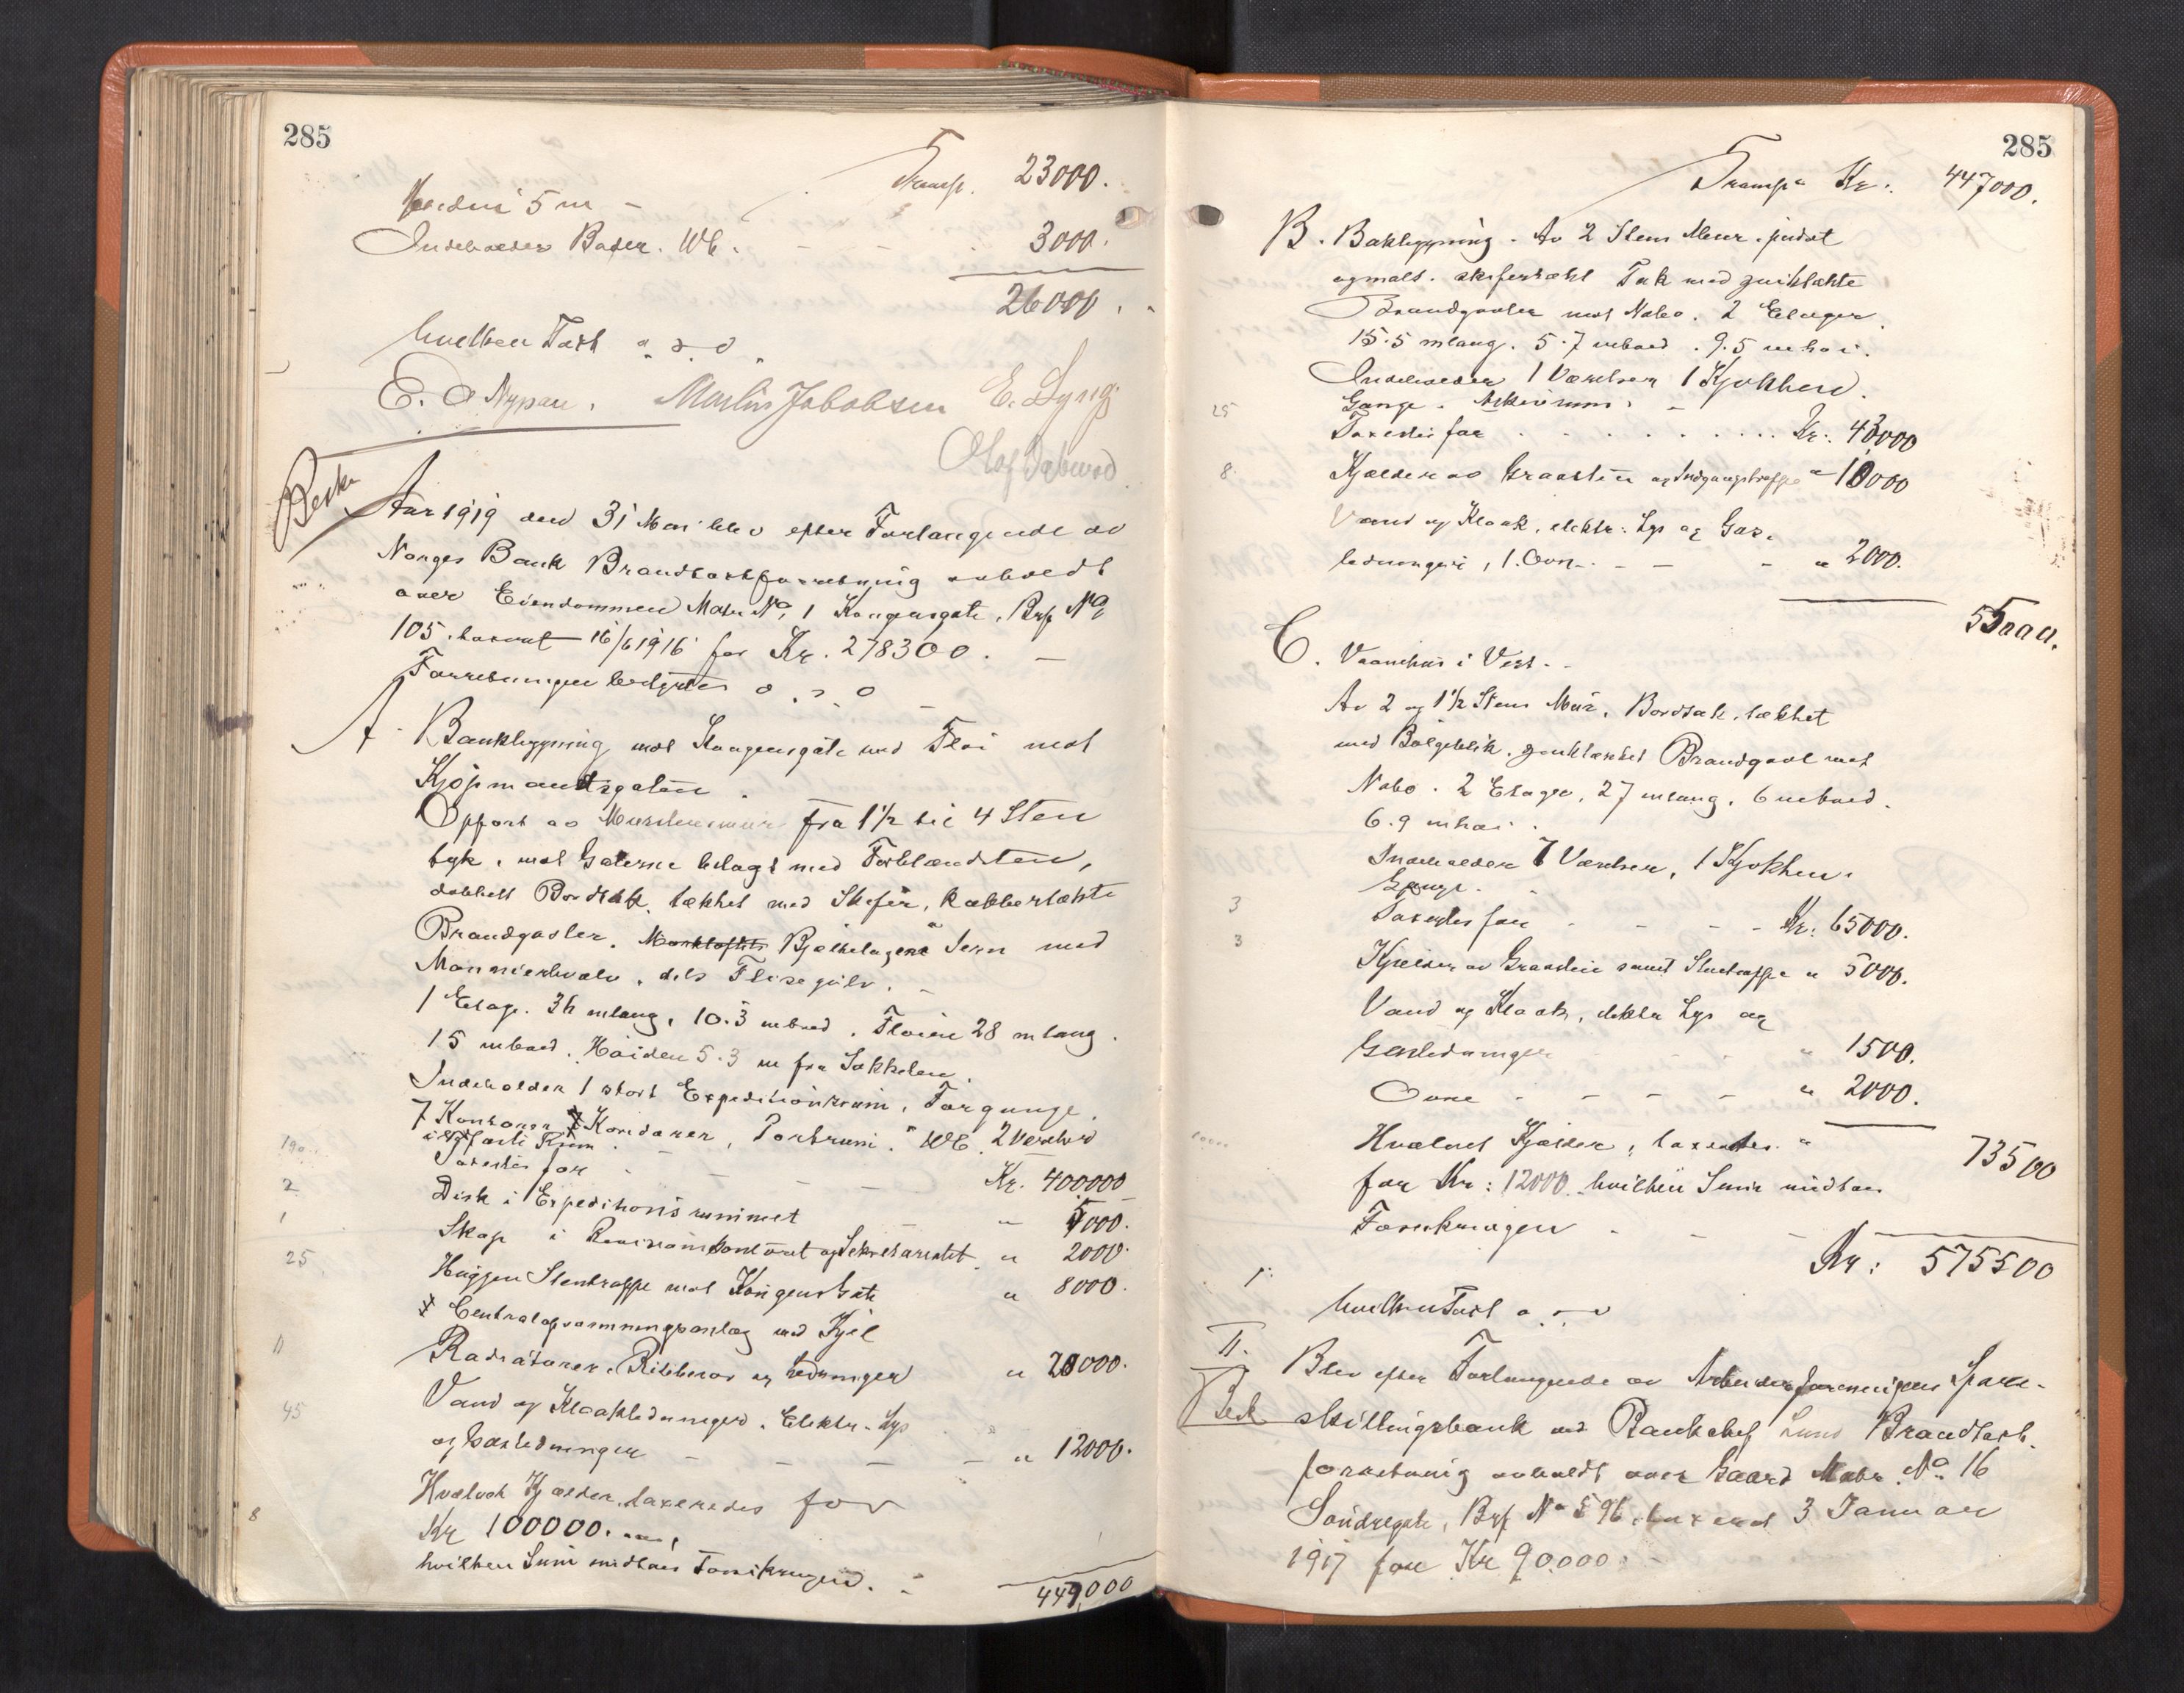 285
Transp. 23000.
Høiden 5 m -
Indeholder Bader. WC. - - 3000.
26000.
hvilken Taxt o. s. v.
E. O Nypan. Martin Jakobsen E. Lyng.
Olaf
Besk
Aar 1919 den 31 Mai blev efter Forlangende av
Norges Bank Brandtaxtforretning avholdt
over Eiendommen Matr No 1 Kongensgate, Brf No
105. taxeret 16/6 1916 for Kr. 278300. -
Forretningen
A. Bankbygning mot Kongensgate med Fløi mot
Kjøpmandsgaten.
Opført av fra 1 1/2 til 4 Sten
tyk, mot Gaterne belagt med Forblændsten,
dobbelt Bordtak, tækket med Skifer, kobbertækte
Brandgavler. Bjælkelagene Jern med
Monnierhvælv, dels Flisegulv. -
1 Etage. 36 m lang, 10.3 m bred. Fløien 28 m lang.
15 m bred. Høiden 5.3 m fra Sokkelen.
Indeholder 1 stort Expeditionsrum, Forgange,
7 Kontorer, Koridorer, WC. 2 Værelser
Rum.
Taxertes for - - - Kr. 400000
2 Disk i Expeditionsrummet - " 5000.
1 Skap i Revisionskontoret og Sekretariatet " 2000.
25 Huggen Stentrappe mot Kongens Gate " 8000.
Centralopvarmningsanlæg med Kjel
11 Radiatorer, og Ledninger " 20000.
45 Vand og Kloakledninger, Elektr. Lys
og Gasledninger - - - - " 12000.
8 Hvælvet Kjælder, taxeredes for
Kr 100000.
hvilken Sum undtas Forsikringen. -
447,000
285
Transp. Kr. 447000.
B. Bakbygning. Av 2 Stens Mur, pudset
og malt. skifertækt Tak med zinktækte
Brandgavler mot Nabo. 2 Etager.
15.5 m lang. 5.7 m bred. 9.5 m høi.
Indeholder 1 Værelser 1 Kjøkken.
Gange. Arkivrum. -
25 Taxertes for . . . . . . . . Kr. 43000
8 Kjælder av Graasten og Indgangstrappe " 10000
Vand og Kloak, elektr. Lys og Gas.
ledninger, 1 Ovn. - - - " 2000.
55000.
C. Vaanehus i Vest. -
Av 2 og 1 1/2 Stens Mur, Bordtak, tækket
med Bølgeblik, zinktækket Brandgavl mot
Nabo. 2 Etager, 27 m lang, 6 m bred.
6.9 m høi.
Indeholder 7 Værelser, 1 Kjøkken.
Gange.
3 Taxertes for - - - - Kr. 65000.
3 Kjælder av Graasten samt Stentrappe " 5000.
Vand og Kloak, elektr Lys og
Gasledninger " 1500.
Ovne - - - - " 2000.
73500
Hvælvet Kjælder, taxertes
for Kr: 12000. hvilken Sum undtas
Forsikringen - - -
Kr: 575500
hvilken Taxt o. s. v
II.
Besk
Blev efter Forlangende av Arbeiderforeningens Spare-
skillingsbank ved Bankchef Lund Brandtaxt.
forretning avholdt over Gaard Matr. No. 16
Søndregate, Brf No 596, taxeret 3 Januar
1917 for Kr 90.000. -